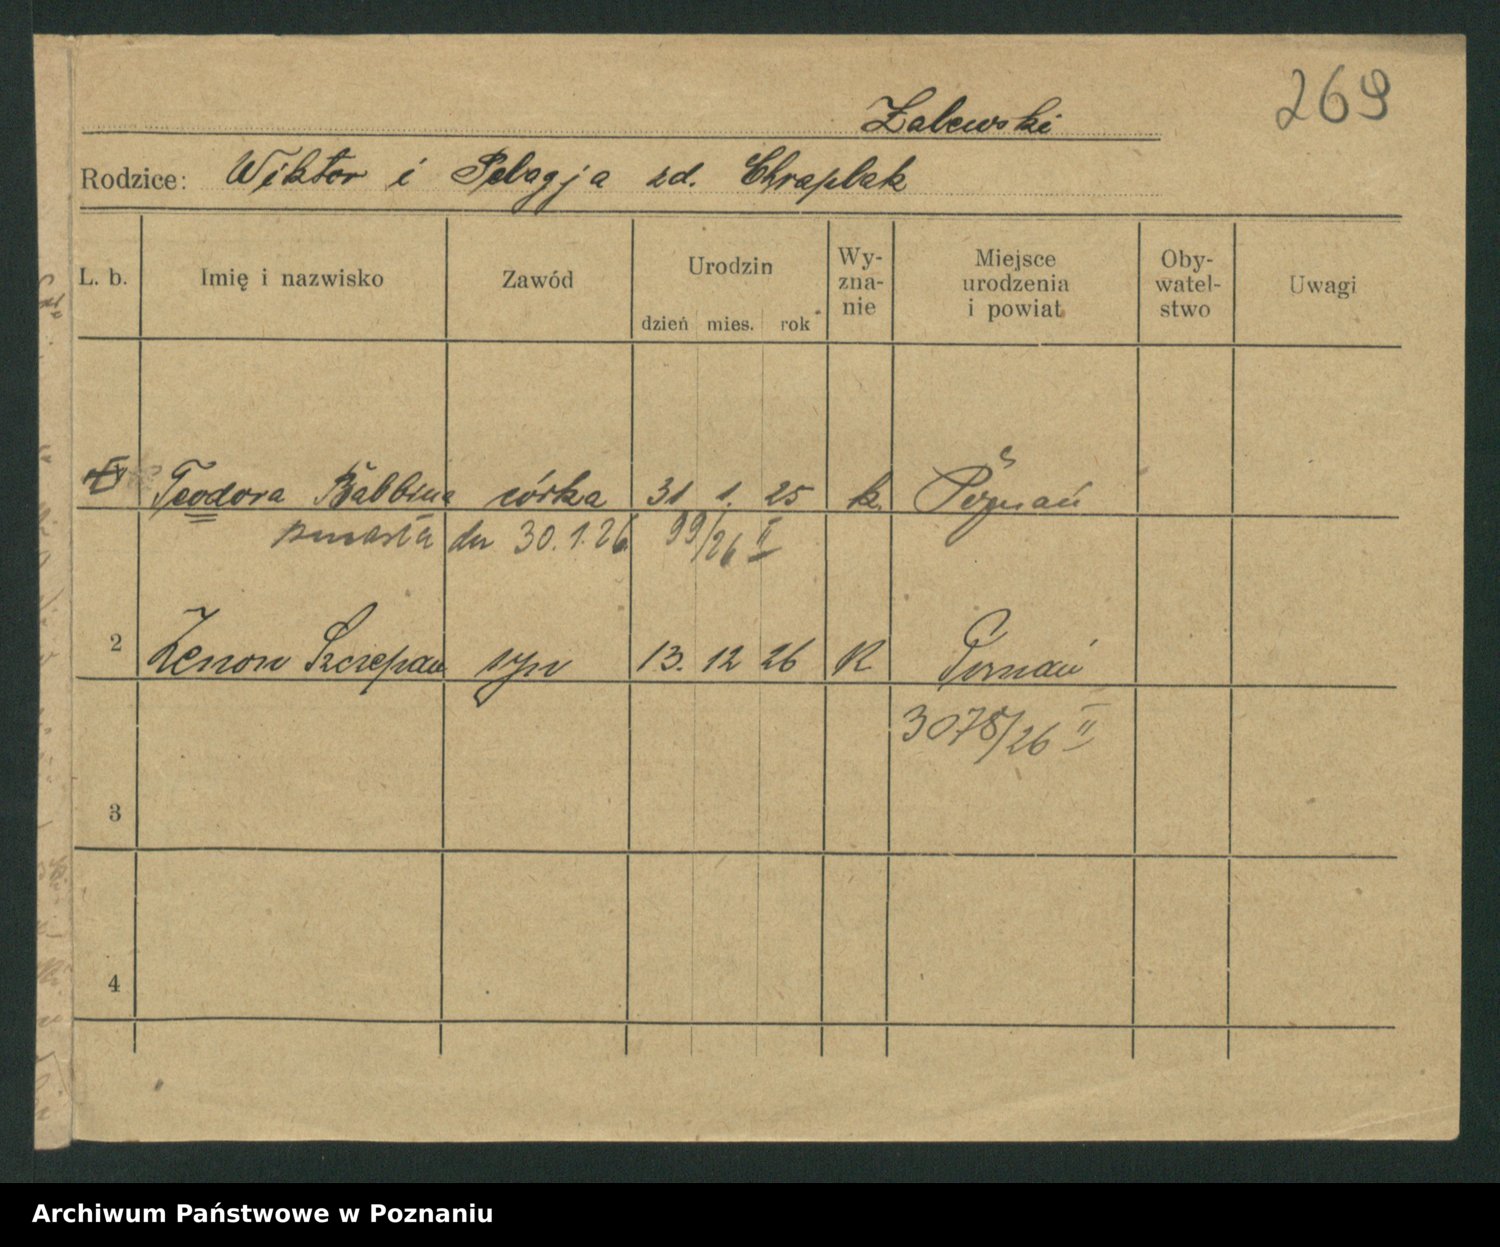 269
Zalewski
Rodzice: Wiktor i Pelagja zd. Chraplak
L. b. Imię i nazwisko Zawód Urodzin dzień mies. rok Wy-zna-nie Miejsce urodzenia i powiat Oby-watel-stwo Uwagi
Teodora córka 31 1. 25 k. Poznań
zmarła dn 30.1.26 99/26 II
2 Zenon Szczepan syn 13. 12 26 K Poznań
3078/26 II
3
4
Archiwum Państwowe w Poznaniu